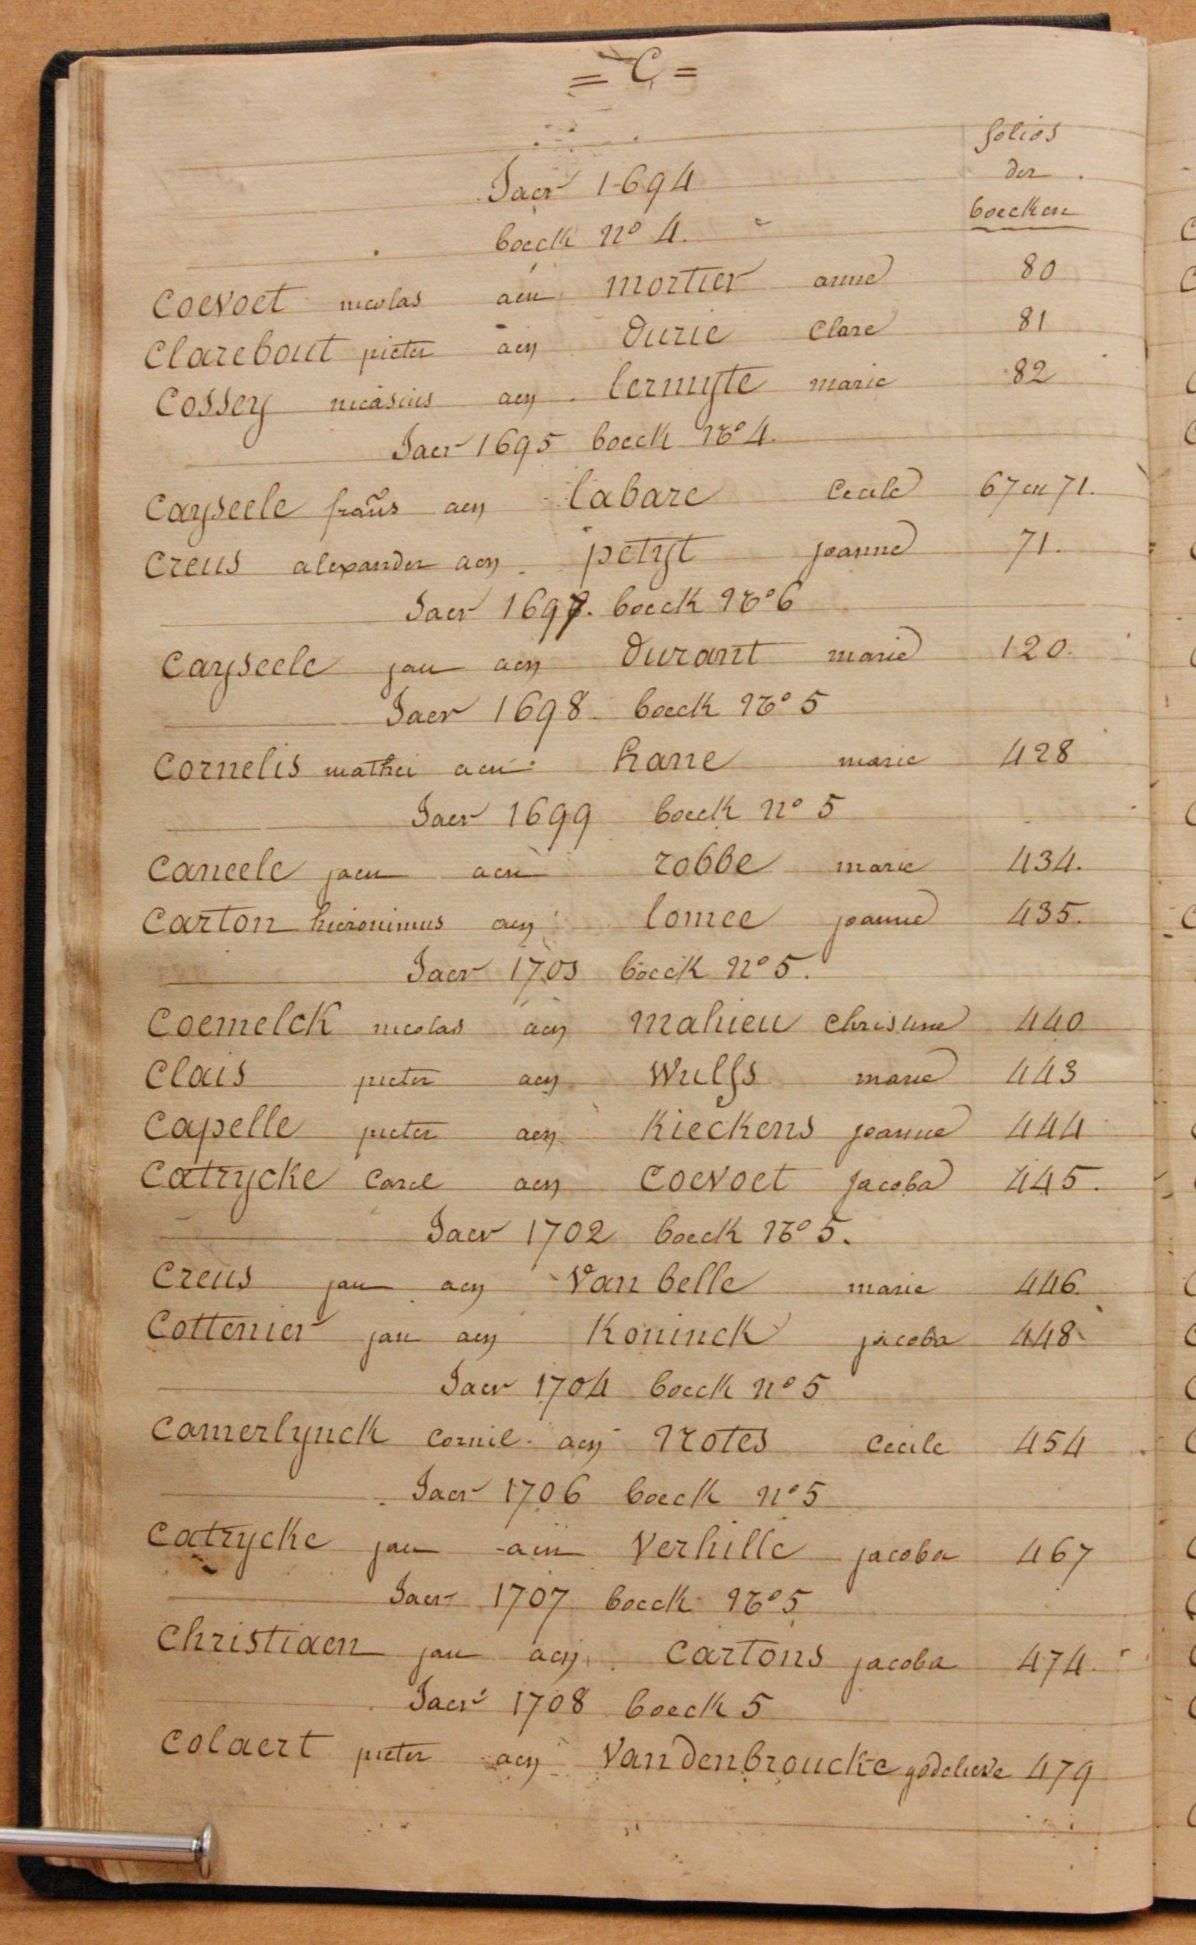 = C =
folios
Jaer 1694 der
boeck no 4. boecken
Coevoet nicolas aen mortier anne 80
Clarebout pieter aen Durie Clare 81
Cossey nicasius aen lermyte marie 82
Jaer 1695 boeck No 4.
Cayseele frañs aen labare Cecile 67 en 71.
Creus alexander aen petyt joanne 71.
Jaer 1697. boeck No 6
Cayseele jan aen Durant marie 120.
Jaer 1698. boeck No 5
Cornelis mathei aen hane marie 428
Jaer 1699 boeck no 5
Caneele jaen aen robbe marie 434.
Carton hieronimus aen lomee joanne 435.
Jaer boeck no 5.
Coemelck nicolas aen mahieu Christine 440
Clais pieter aen Wulfs marie 443
Capelle pieter aen Kieckens joanne 444
Catrycke Carel aen Coevoet Jacoba 445.
Jaer 1702 boeck No 5.
Creus jan aen Van belle marie 446.
Cottenier jan aen Koninck jacoba 448
Jaer 1704 boeck no 5
Camerlynck Cornil aen Notes Cecile 454
Jaer 1706 boeck no 5
Catrycke jan aen Verhille jacoba 467
Jaer 1707 boeck No 5
Christiaen jan aen Cartons jacoba 474
Jaer 1708 boeck 5
Colaert pieter aen Vandenbroucke godelieve 479